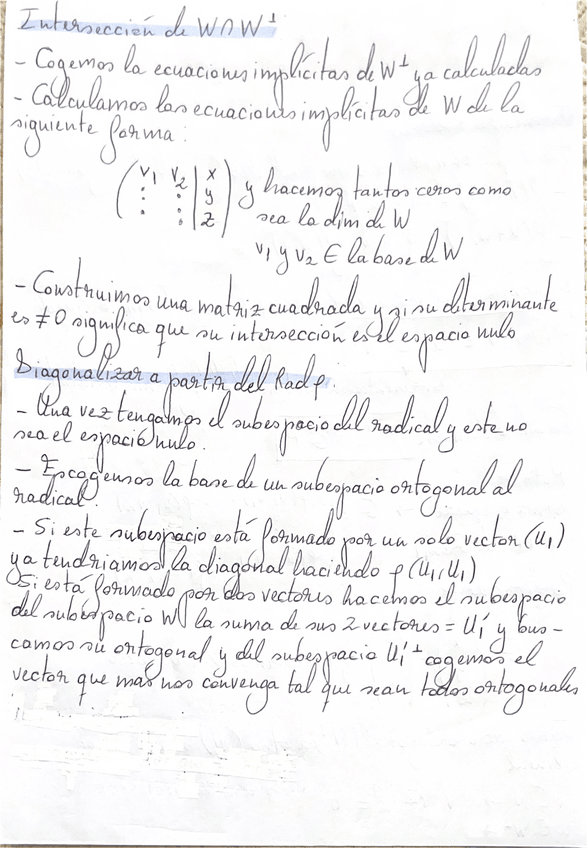 Intersección de W∩W⊥
- Cogemos la ecuaciones implícitas de W⊥ ya calculadas
- Calculamos las ecuaciones implícitas de W de la
siguiente forma:
( v1 v2 | x
⋮ ⋮ | y
⋮ ⋮ | z ) y hacemos tantos ceros como
sea la dim de W
v1 y v2 ∈ la base de W
- Construimos una matriz cuadrada y si su determinante
es ≠0 significa que su intersección es el espacio nulo
Diagonalizar a partir del Rad φ.
- Una vez tengamos el subespacio del radical y este no
sea el espacio nulo.
- Escogemos la base de un subespacio ortogonal al
radical.
- Si este subespacio está formado por un solo vector (u1)
ya tendriamos la diagonal haciendo φ(u1,u1)
Si está formado por dos vectores hacemos el subespacio
del subespacio W la suma de sus 2 vectores = u1' y bus-
camos su ortogonal y del subespacio u1'⊥ cogemos el
vector que mas nos convenga tal que sean todos ortogonales